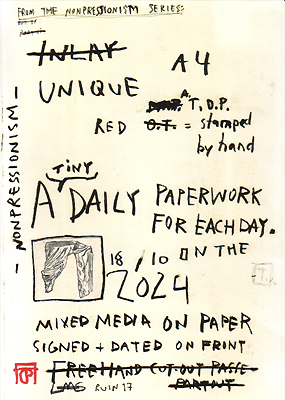 FROM THE NONPRESSIONISM SERIES:
INLAY
A4
UNIQUE
A.T.D.P.
RED O.T. = stamped
by hand
- NONPRESSIONISM -
TINY
A DAILY PAPERWORK
FOR EACH DAY.
18/10 ON THE
2024
MIXED MEDIA ON PAPER
SIGNED + DATED ON FRONT
FREEHAND CUT-OUT PASSE-
PARTOUT
RUIN 17